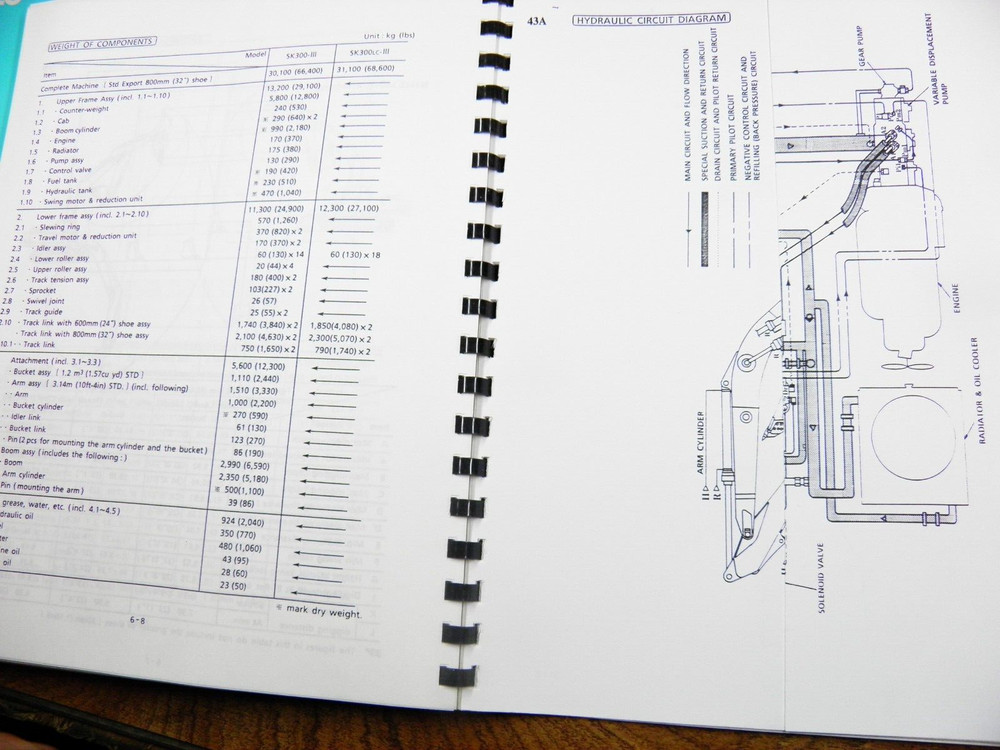 WEIGHT OF COMPONENTS
Unit : kg (lbs)
Item Model SK300-III SK300LC-III
Complete Machine [ Std Export 800mm (32") shoe ] 30,100 (66,400) 31,100 (68,600)
1. Upper Frame Assy (incl. 1.1~1.10) 13,200 (29,100) ←
1.1 · Counter-weight 5,800 (12,800) ←
1.2 · Cab 240 (530) ←
1.3 · Boom cylinder ※ 290 (640) × 2 ←
1.4 · Engine ※ 990 (2,180) ←
1.5 · Radiator 170 (370) ←
1.6 · Pump assy 175 (380) ←
1.7 · Control valve 130 (290) ←
1.8 · Fuel tank ※ 190 (420) ←
1.9 · Hydraulic tank ※ 230 (510) ←
1.10 · Swing motor & reduction unit ※ 470 (1,040) ←
2. Lower frame assy (incl. 2.1~2.10) 11,300 (24,900) 12,300 (27,100)
2.1 · Slewing ring 570 (1,260) ←
2.2 · Travel motor & reduction unit 370 (820) × 2 ←
2.3 · Idler assy 170 (370) × 2 ←
2.4 · Lower roller assy 60 (130) × 14 60 (130) × 18
2.5 · Upper roller assy 20 (44) × 4 ←
2.6 · Track tension assy 180 (400) × 2 ←
2.7 · Sprocket 103(227) × 2 ←
2.8 · Swivel joint 26 (57) ←
2.9 · Track guide 25 (55) × 2 ←
2.10 · Track link with 600mm (24") shoe assy 1,740 (3,840) × 2 1,850(4,080) × 2
· Track link with 800mm (32") shoe assy 2,100 (4,630) × 2 2,300(5,070) × 2
10.1 · · Track link 750 (1,650) × 2 790(1,740) × 2
Attachment (incl. 3.1~3.3) 5,600 (12,300) ←
· Bucket assy [ 1.2 m³ (1.57cu yd) STD ] 1,110 (2,440) ←
· Arm assy [ 3.14m (10ft-4in) STD. ] (incl. following) 1,510 (3,330) ←
· · Arm 1,000 (2,200) ←
· · Bucket cylinder ※ 270 (590) ←
· · Idler link 61 (130) ←
· · Bucket link 123 (270) ←
· Pin (2 pcs for mounting the arm cylinder and the bucket) 86 (190) ←
Boom assy (includes the following : ) 2,990 (6,590) ←
Boom 2,350 (5,180) ←
Arm cylinder ※ 500(1,100) ←
Pin ( mounting the arm ) 39 (86) ←
grease, water, etc. (incl. 4.1~4.5) 924 (2,040) ←
draulic oil 350 (770) ←
el 480 (1,060) ←
ter 43 (95) ←
ne oil 28 (60) ←
oil 23 (50) ←
※ mark dry weight.
6-8
43A
HYDRAULIC CIRCUIT DIAGRAM
MAIN CIRCUIT AND FLOW DIRECTION
SPECIAL SUCTION AND RETURN CIRCUIT
DRAIN CIRCUIT AND PILOT RETURN CIRCUIT
PRIMARY PILOT CIRCUIT
NEGATIVE CONTROL CIRCUIT AND
REFILLING (BACK PRESSURE) CIRCUIT
GEAR PUMP
VARIABLE DISPLACEMENT
PUMP
ENGINE
RADIATOR & OIL COOLER
ARM CYLINDER
H
R
SOLENOID VALVE